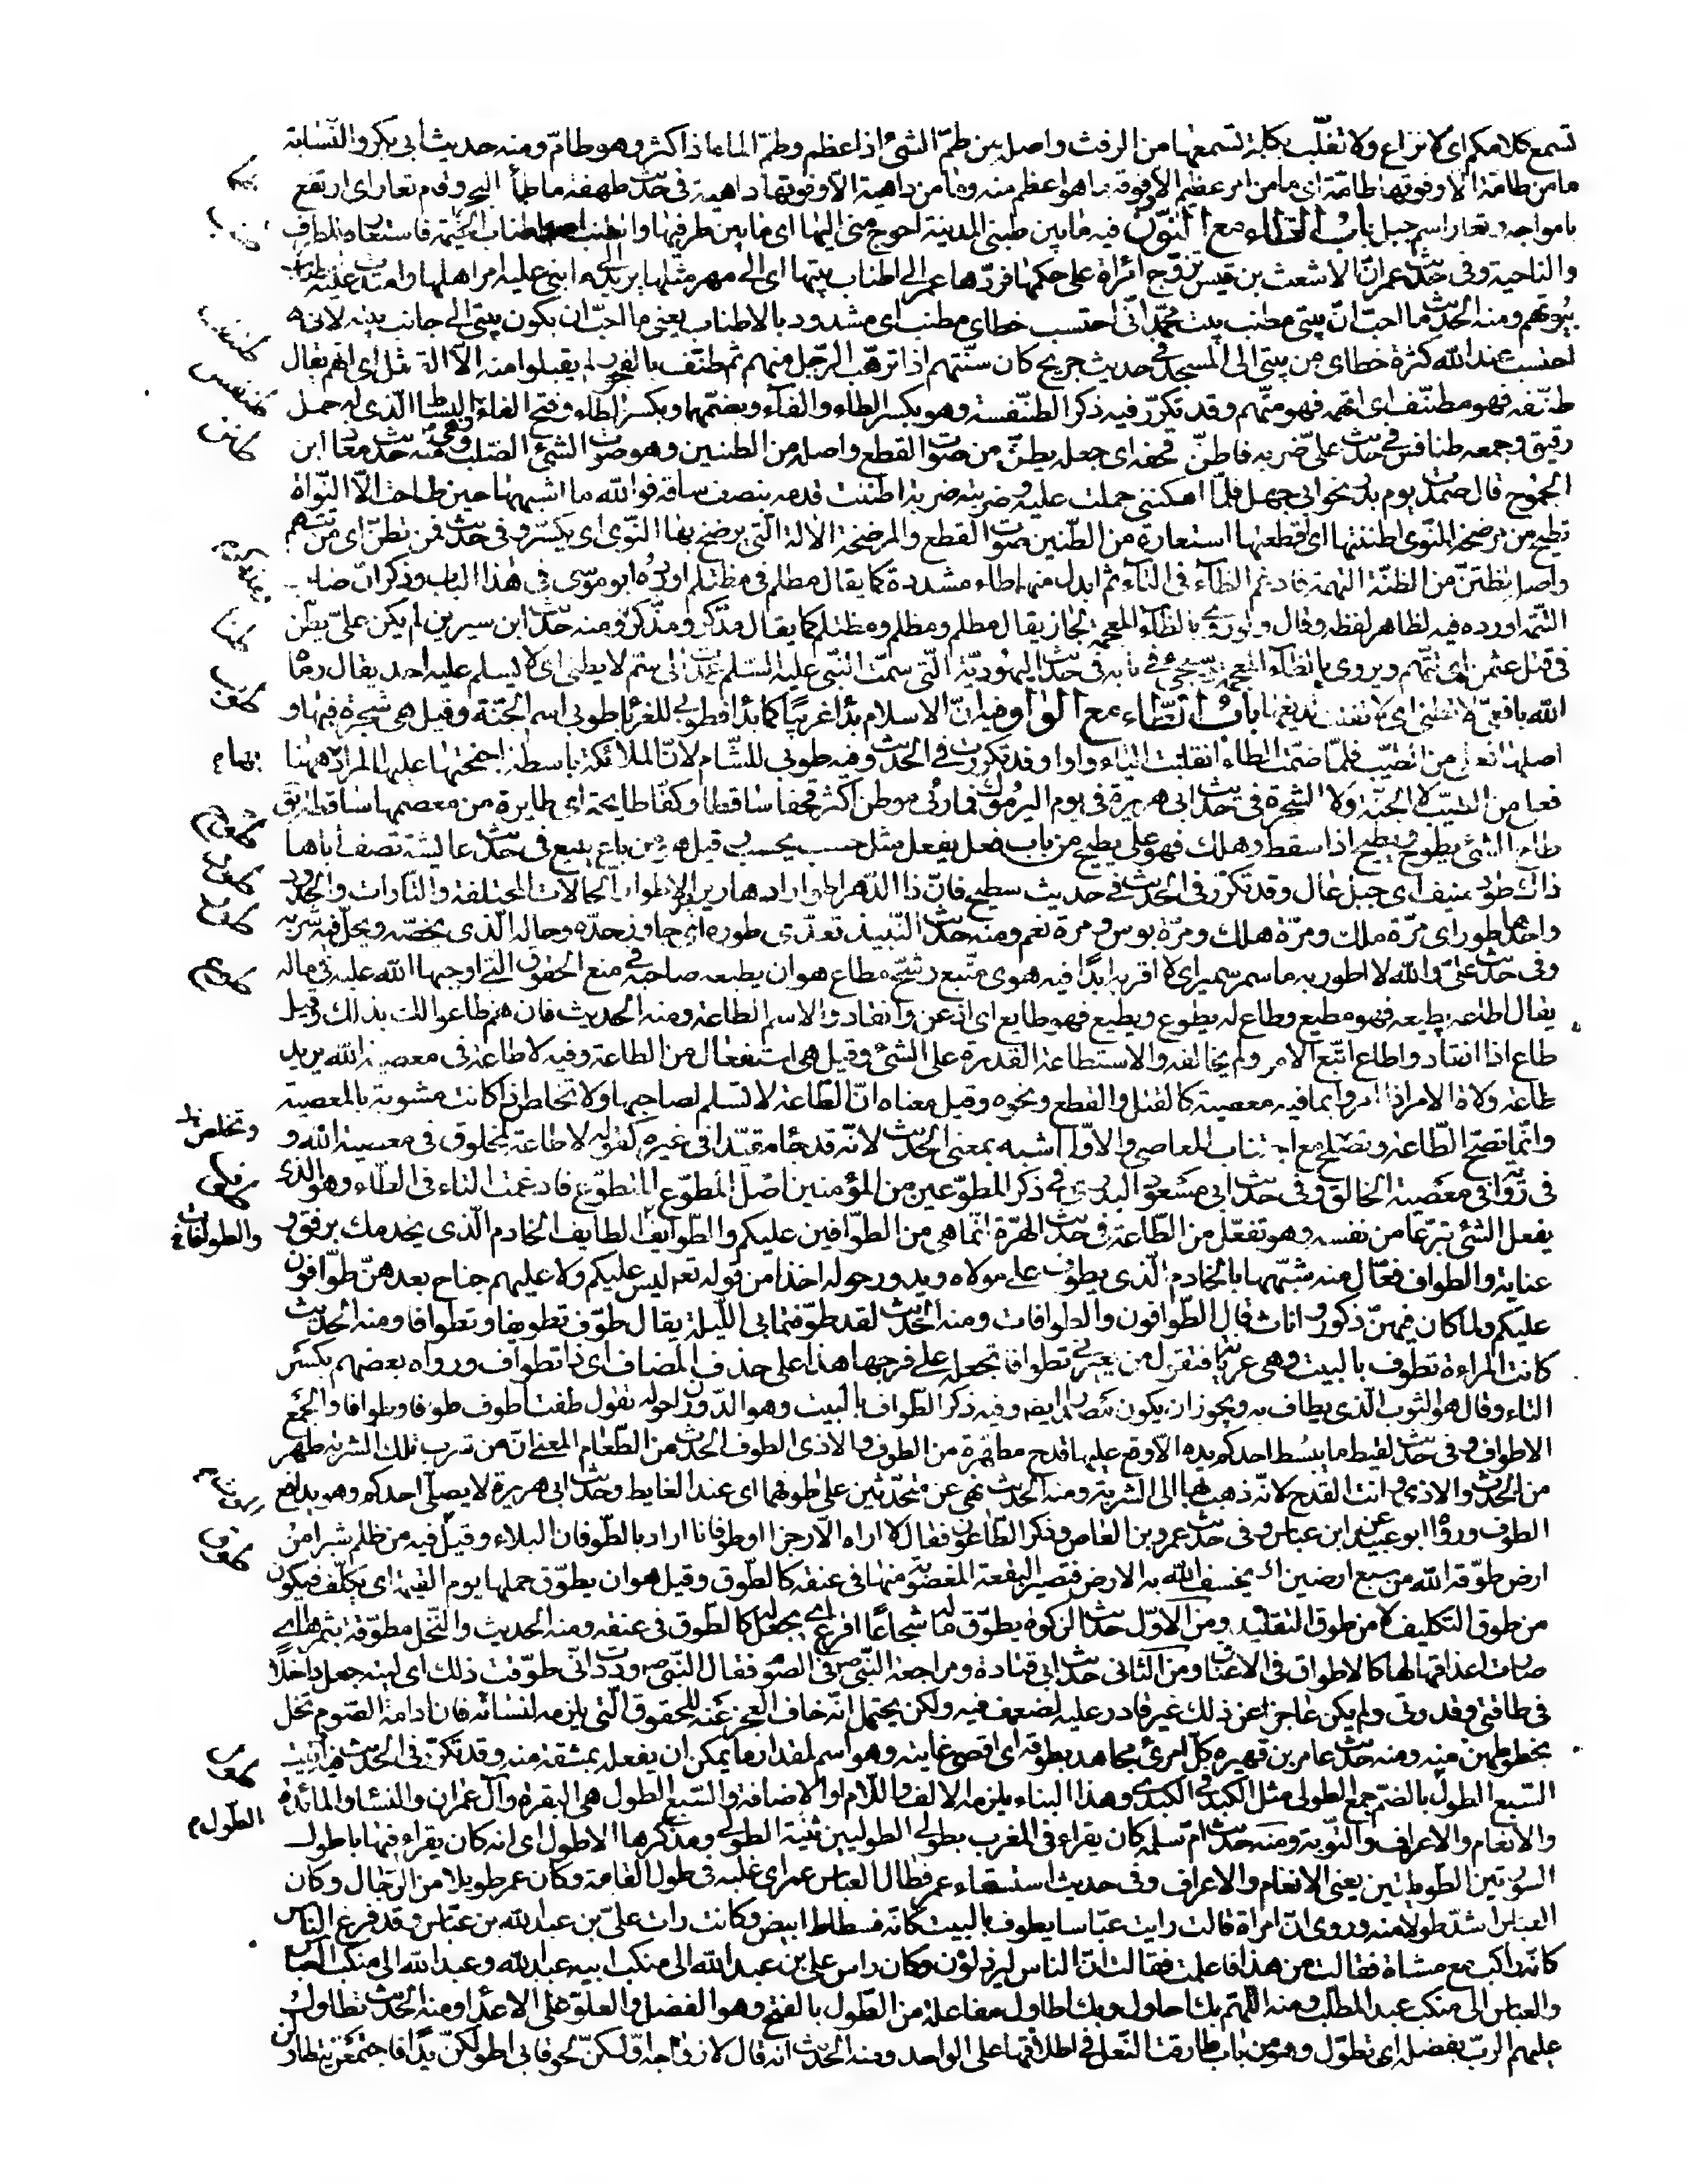 تسمع كلامكم اى لا نراع ولا نغلب بكلمة تسمعها من الرفث واصله من طمّ الشئ اذا عظم وطمّ الماء اذا كثر وهو طامّ ومنه حديث ابى بكر والنسابة
ما من طامّة الا وفوقها طامّة اى ما من امر عظيم الا وفوقه ما هو اعظم منه وما من داهية الّا وفوقها داهية فى حديث طهفة ما طما البحر وقام تعار اى ارتفع
بامواجه وتعار اسم جبل باب الطاء مع النون فيه ما بين طنبى المدينة احوج منى اليها اى ما بين طرفيها والطنب احد اطناب الخيمة فاستعاره للطرف
والناحية وفى حديث عمر انّ الاشعث بن قيس تزوّج امراة على حكمها فردّها عمر الى اطناب بيتها اى الى مهر مثلها يريد الى ما بنى عليه امر اهلها وامتدت عليه اطناب
بيوتهم ومنه الحديث ما احبّ انّ بيتى مطنب ببيت محمّد انّى احتسب خطاى مطنب اى مشدود بالاطناب يعنى ما احبّ ان يكون بيتى الى جانب بيته لانى
احتسب عند الله كثرة خطاى من بيتى الى المسجد فى حديث جريج كان سنّتهم اذا ترهّب الرّجل منهم ثم طنّف بالفجور لم يقبلوا منه الّا القتل اى اتهم يقال
طنّفته فهو مطنّف اى اتهمته فهو متّهم وقد تكرّر فيه ذكر الطنفسة وهو بكسر الطاء والفاء وبضمّهما وبكسر الطاء وفتح الفاء البساط الّذى له خمل
رقيق وجمعه طنافس فى حديث علىّ ضربه فاطنّ قحفه اى جعله يطنّ من صوت القطع واصله من الطنين وهو صوت الشئ الصّلب ومنه حديث معاذ ابن
الجموح قال صمدت يوم بدر نحو ابى جهل فلمّا امكننى حملت عليه وضربته ضربة اطننت قدمه بنصف ساقه فوالله ما اشبهها حين طاحت الّا النّواة
تطيح من مرضخة النّوى اطننتها اى قطعتها استعارة من الطّنين صوت القطع والمرضخة الالة الّتى يرضخ بها النّوى اى يكسر وفى حديث فمن تظنّ اى من تتّهم
واصله تظتنّ من الظنّة التهمة فادغم الظاء فى التاء ثم ابدل منها طاء مشددة كما يقال مطلم فى مظتلم اورده ابو موسى فى هذا الباب وذكر انّ صاحب
التتمة اورده فيه لظاهر لفظه وقال ولو روى بالظاء المعجمة لجاز يقال مطلم ومظلم ومظتلم كما يقال مدّكر ومذّكر ومنه حديث ابن سيرين لم يكن علىّ يطّنّ
فى قتل عثمن اى يتّهم ويروى بالظاء المعجمة وسيجئ فى بابه فى حديث اليهوديّة الّتى سمّت النّبى عليه السّلم عمدت الى سمّ لا يطنى اى لا يسلم عليه احد يقال رماه
الله بافعى لا تطنى اى لا تفلت لديغها باب الطّاء مع الواو فيه انّ الاسلام بدا غريبا كما بدا فطوبى للغربا طوبى اسم الجنّة وقيل هى شجرة فيها و
اصلها فعلى من الطيّب فلمّا ضمّت الطاء انقلبت الياء واوا وقد تكررت فى الحديث وفيه طوبى للشّام لانّ الملائكة باسطة اجنحتها عليها المراد ههنا
فعلى من الطيّب لا الجنّة ولا الشجرة فى حديث ابى هريرة فى يوم اليرموك فما رئى موطن اكثر قحفا ساقطا وكفّا طايحة اى طايرة من معصمها ساقطة يق
طاح الشئ يطوح ويطيح اذا سقط وهلك فهو على يطيح من باب فعل يفعل مثل حسب يحسب وقيل هو من باع يبيع فى حديث عايشة تصف اباها
ذاك طود منيف اى جبل عال وقد تكرّر فى الحديث فى حديث سطيح فانّ ذا الدّهر اطوار دهارير الاطوار الحالات المختلفة والتارات والحدود
واحدها طور اى مرّة ملك ومرّة هلك ومرّة بوس ومرة نعم ومنه حديث النّبيذ تعدّى طوره اى جاوز حدّه وحاله الّذى يخصّه ويحلّ فيه شربه
وفى حديث علىّ والله لا اطور به ما سمر سمير اى لا اقربه ابدًا فيه هوى متّبع وشحّ مطاع هو ان يطيعه صاحبه فى منع الحقوق التى اوجبها الله عليه فى ماله
يقال اطاعه يطيعه فهو مطيع وطاع له يطوع ويطيع فهو طايع اى اذعن وانقاد والاسم الطاعة ومنه الحديث فان هم طاعوا لك بذلك وقيل
طاع اذا انقاد واطاع اتّبع الامر ولم يخالفه والاستطاعة القدرة على الشئ وقيل هى استفعال من الطاعة وفيه لا طاعة فى معصية الله يريد
طاعة ولاة الامر اذا امروا بما فيه معصية كالقتل والقطع ونحوه وقيل معناه انّ الطّاعة لا تسلم لصاحبها ولا تخلص اذا كانت مشوبة بالمعصية
وانّما تصحّ الطّاعة وتصلح مع اجتناب المعاصى والاوّل اشبه بمعنى الحديث لانّه قد جاء مقيّدا فى غيره كقوله لا طاعة لمخلوق فى معصية الله و
فى رواية فى معصية الخالق وفى حديث ابى مسعود البدرى فى ذكر المطّوّعين من المؤمنين اصل المطّوّع المتطوّع فادغمت التاء فى الطّاء وهو الذى
يفعل الشئ تبرّعا من نفسه وهو تفعّل من الطّاعة فى حديث الهرّة انّما هى من الطوّافين عليكم والطوّافات الطايف الخادم الّذى يخدمك برفق و
عناية والطواف فعّال منه شبّهها بالخادم الّذى يطوف على مولاه ويدور حوله اخذا من قوله تعم ليس عليكم ولا عليهم جناح بعدهنّ طوّافون
عليكم ولما كان فيهنّ ذكور واناث قال الطّوافون والطوافات ومنه الحديث لقد طوّفتما بى اللّيلة يقال طوّف تطويفا وتطوافا ومنه الحديث
كانت المراءة تطوف بالبيت وهى عريانة فتقول من يعيرنى تطوافا تجعله على فرجها هذا على حذف المضاف اى ذا تطواف ورواه بعضهم بكسر
التاء وقال هو الثوب الّذى يطاف به ويجوز ان يكون مصدرا ايضا وفيه ذكر الطّواف بالبيت وهو الدّوران حوله تقول طفت اطوف طوفا وطوافا والجمع
الاطواف وفى حديث لقيط ما يبسط احدكم يده الّا وقع عليها قدح مطهّرة من الطوف والاذى الطوف الحدث من الطّعام المعنى انّ من شرب تلك الشربة طهر
من الحدث والاذى وانث القدح لانّه ذهب بها الى الشربة ومنه الحديث نهى عن متحدّثين على طوفهما اى عند الغايط وحديث ابى هريرة لا يصلّى احدكم وهو يدافع
الطوف ورواه ابو عبيد عن ابن عباس وفى حديث عمرو بن العاص وذكر الطّاعون فقال لا اراه الّا رجزا او طوفانا اراد بالطّوفان البلاء وقيل فيه من ظلم شبرا من
ارض طوّقه الله من سبع ارضين اى يخسف الله به الارض فتصير البقعة المغصوبة منها فى عنقه كالطّوق وقيل هو ان يطوّق حملها يوم القيمة اى يكلّف فيكون
من طوق التكليف لا من طوق التقليد ومن الاوّل حديث الزكوة يطوّق ماله شجاعًا اقرع اى يجعل له كالطّوق فى عنقه ومنه الحديث والنّخل مطوّقة بثمرها اى
صارت اعذاقها لها كالاطواق فى الاعناق ومن الثانى حديث ابى قتادة ومراجعة النّبى ص فى الصّوم فقال النّبى ص وددت انّى طوّقت ذلك اى ليته جعل داخلًا
فى طاقتى وقدرتى ولم يكن عاجزًا عن ذلك غير قادر عليه لضعف فيه ولكن يحتمل انّه خاف العجز عنه للحقوق الّتى يلزمه لنسائه فان ادامة الصّوم تخلّ
بحظوظهن منه ومنه حديث عامر بن فهيرة كلّ امرئ مجاهد بطوقه اى اقصى غايته وهو اسم لمقدار ما يمكن ان يفعله بمشقة منه وقد تكرّر فى الحديث اوتيت
السّبع الطول بالضمّ جمع الطولى مثل الكبر فى الكبرى وهذا البناء يلزمه الالف واللّام او الاضافة والسّبع الطول هى البقرة وآل عمران والنساء والمائدة
والانعام والاعراف والتّوبة ومنه حديث امّ سلمة كان يقراء فى المغرب بطولى الطوليين تثنية الطولى ومذكرها الاطول اى انه كان يقراء فيها باطول
السورتين الطويلتين يعنى الانعام والاعراف وفى حديث استسقاء عمر فطال العباس عمر اى غلبه فى طول القامة وكان عمر طويلا من الرّجال وكان
العباس اشدّ طولًا منه وروى انّ امراة قالت رايت عبّاسا يطوف بالبيت كانّه فسطاط ابيض وكانت رات علىّ بن عبد الله بن عبّاس وقد فرع الناس
كانّه راكب مع مشاة فقالت من هذا فاعلمت فقالت انّ الناس ليرذلون وكان راس على بن عبد الله الى منكب ابيه عبد الله وعبد الله الى منكب العباس
والعباس الى منكب عبد المطّلب ومنه اللّهم بك احاول وبك اطاول مفاعلة من الطّول بالفتح وهو الفضل والعلوّ على الاعداء ومنه الحديث تطاول
عليهم الربّ بفضله اى تطوّل وهو من باب طارقت النّعل فى اطلاقها على الواحد ومنه الحديث انه قال لازواجه اوّلكنّ لحوقا بى اطولكنّ يدًا فاجتمعن يتطاولن
وتخلص
والطوافات
الطّول م